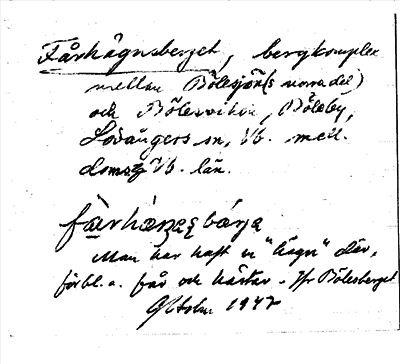 Fårhägnsberget, bergkomplex
mellan Bölesjön(s norra del)
och Bölesviken, Böleby,
Lövångers sn, Vb. mell.
doms Vb. län.
Man har haft en "hägn" där,
förbl. a. får och hästar. Jfr Bölesberget
1947